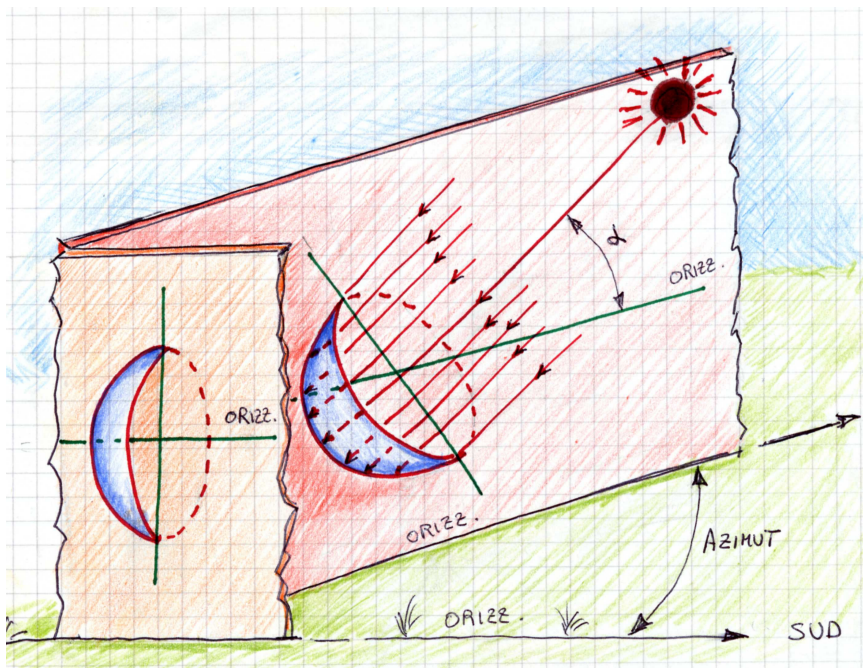 α
ORIZZ.
ORIZZ.
ORIZZ.
AZIMUT
ORIZZ.
SUD